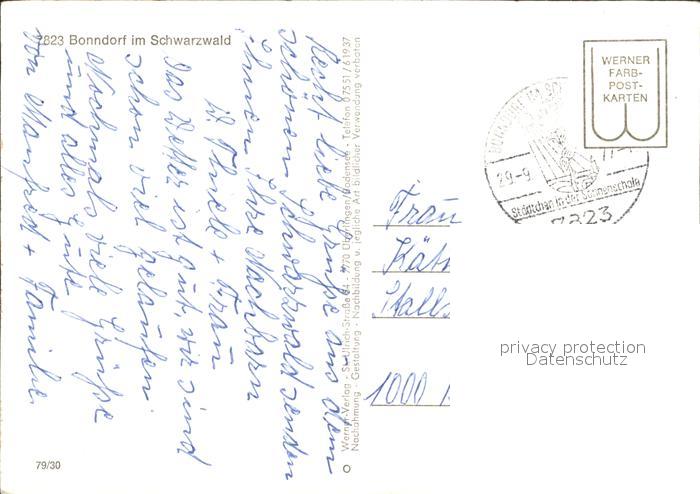 7823 Bonndorf im Schwarzwald
Recht liebe Grüße aus dem
schönen Schwarzwald senden
Ihnen Ihre Nachbarn
W. Thiele + Frau
Das Wetter ist gut, wir sind
schon viel gelaufen.
Nochmals viele Grüße
und alles Gute
von Manfred + Familie
79/30
Werner-Verlag - St.-Ulrich-Straße 54 - 7770 Überlingen/Bodensee - Telefon 07551/61937
Nachahmung - Gestaltung - Nachbildung u. jegliche Art bildlicher Verwendung verboten
WERNER
FARB-
POST-
KARTEN
29.-9
Städtchen in der Sonnenschale
7823
Frau
Kät
Stalls
1000
privacy protection
Datenschutz